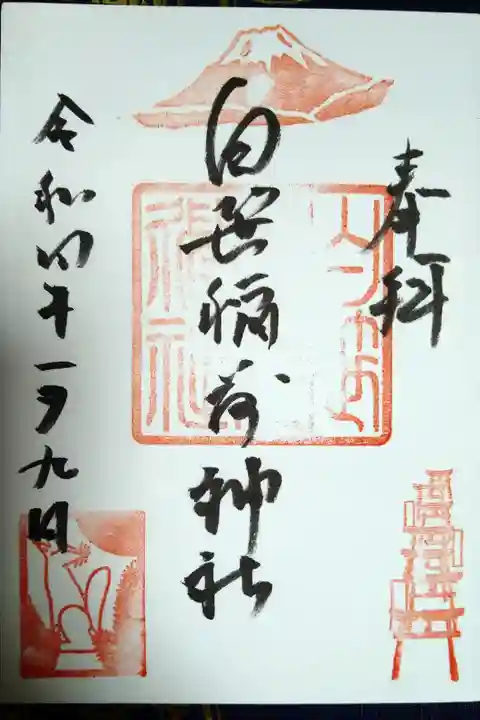 奉拝
白笹稲荷神社
令和四年一月九日